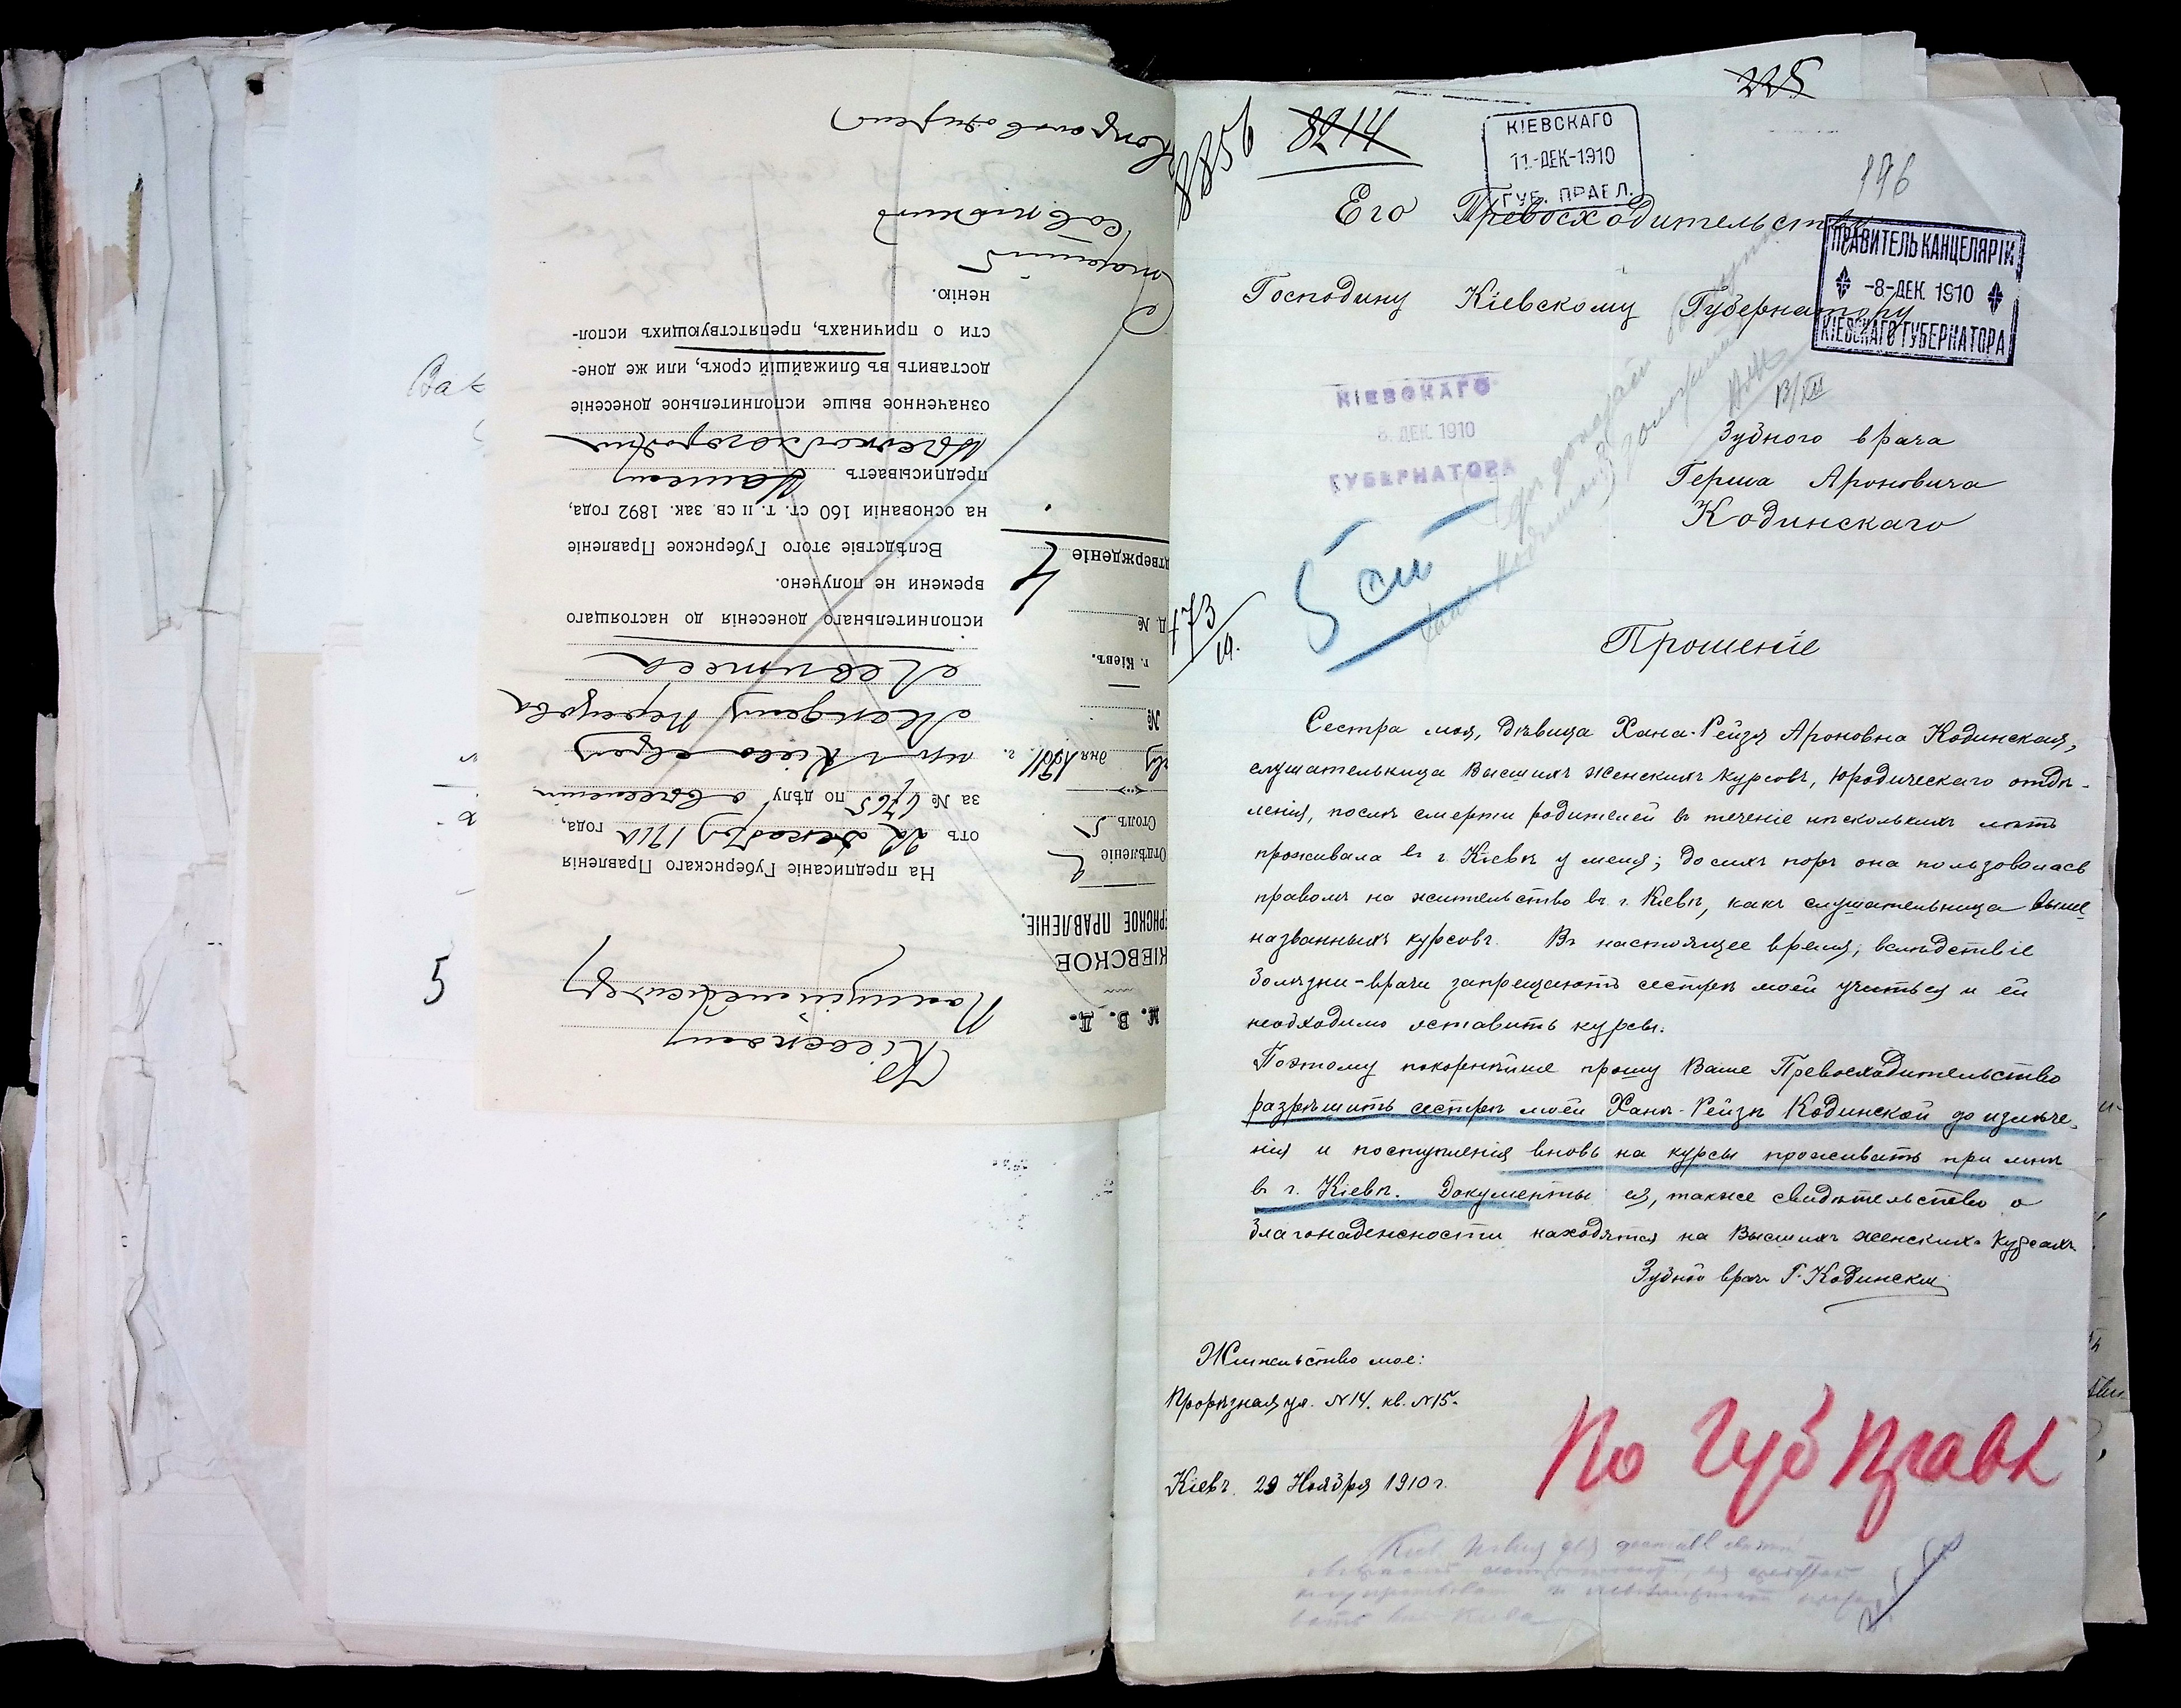 Кіевскому
Полицiймейстеру
М. В. Д.
КІЕВСКОЕ
ГУБЕРНСКОЕ ПРАВЛЕНІЕ.
Отдѣленіе 2
Столъ 5
дня 1911 г.
№
г. Кіевъ.
Д. №
На предписаніе Губернскаго Правленія
отъ 22 декабря 1910 года,
за № 6765 по дѣлу о выселеніи
изъ г. Кіева еврея
Менделя
исполнительнаго донесенія до настоящаго
времени не получено.
Вслѣдствіе этого Губернское Правленіе
на основаніи 160 ст. т. II св. зак. 1892 года,
предписываетъ Вашему
Высокоблагородію
означенное выше исполнительное донесеніе
доставить въ ближайшій срокъ, или же доне-
сти о причинахъ, препятствующихъ испол-
ненію.
Совѣтникъ
5
225
8856
8214
КІЕВСКАГО
11-ДЕК-1910
ГУБ. ПРАВЛ.
196
Его Превосходительству
ПРАВИТЕЛЬ КАНЦЕЛЯРІИ
-8-ДЕК. 1910
КІЕВСКАГО ГУБЕРНАТОРА
Господину Кіевскому Губернатору
КІЕВСКАГО
8. ДЕК. 1910
ГУБЕРНАТОРА
13/XII
Зубного врача
Герша Ароновича
Кодинскаго
5 ст
173
10.
Прошеніе
Сестра моя, дѣвица Хана-Рейзя Ароновна Кодинская,
слушательница Высшихъ женскихъ курсовъ, юридическаго отдѣ-
ленія, послѣ смерти родителей въ теченіе нѣсколькихъ лѣтъ
проживала въ г. Кіевѣ у меня; до сихъ поръ она пользовалась
правомъ на жительство въ г. Кіевѣ, какъ слушательница выше
названныхъ курсовъ. Въ настоящее время, вслѣдствіе
болѣзни - врачи запрещаютъ сестрѣ моей учиться и ей
необходимо оставить курсы.
Поэтому покорнѣйше прошу Ваше Превосходительство
разрѣшить сестрѣ моей Ханѣ-Рейзѣ Кодинской до излѣче-
нія и поступленія вновь на курсы проживать при мнѣ
въ г. Кіевѣ. Документы ея, также свидѣтельство о
благонадежности находятся на Высшихъ женскихъ курсахъ.
Зубной врачъ Г. Кодинскій
Жительство мое:
Прорѣзная ул. №14. кв. №15.
Кіевъ. 29 Ноября 1910 г.
По Губ Правл